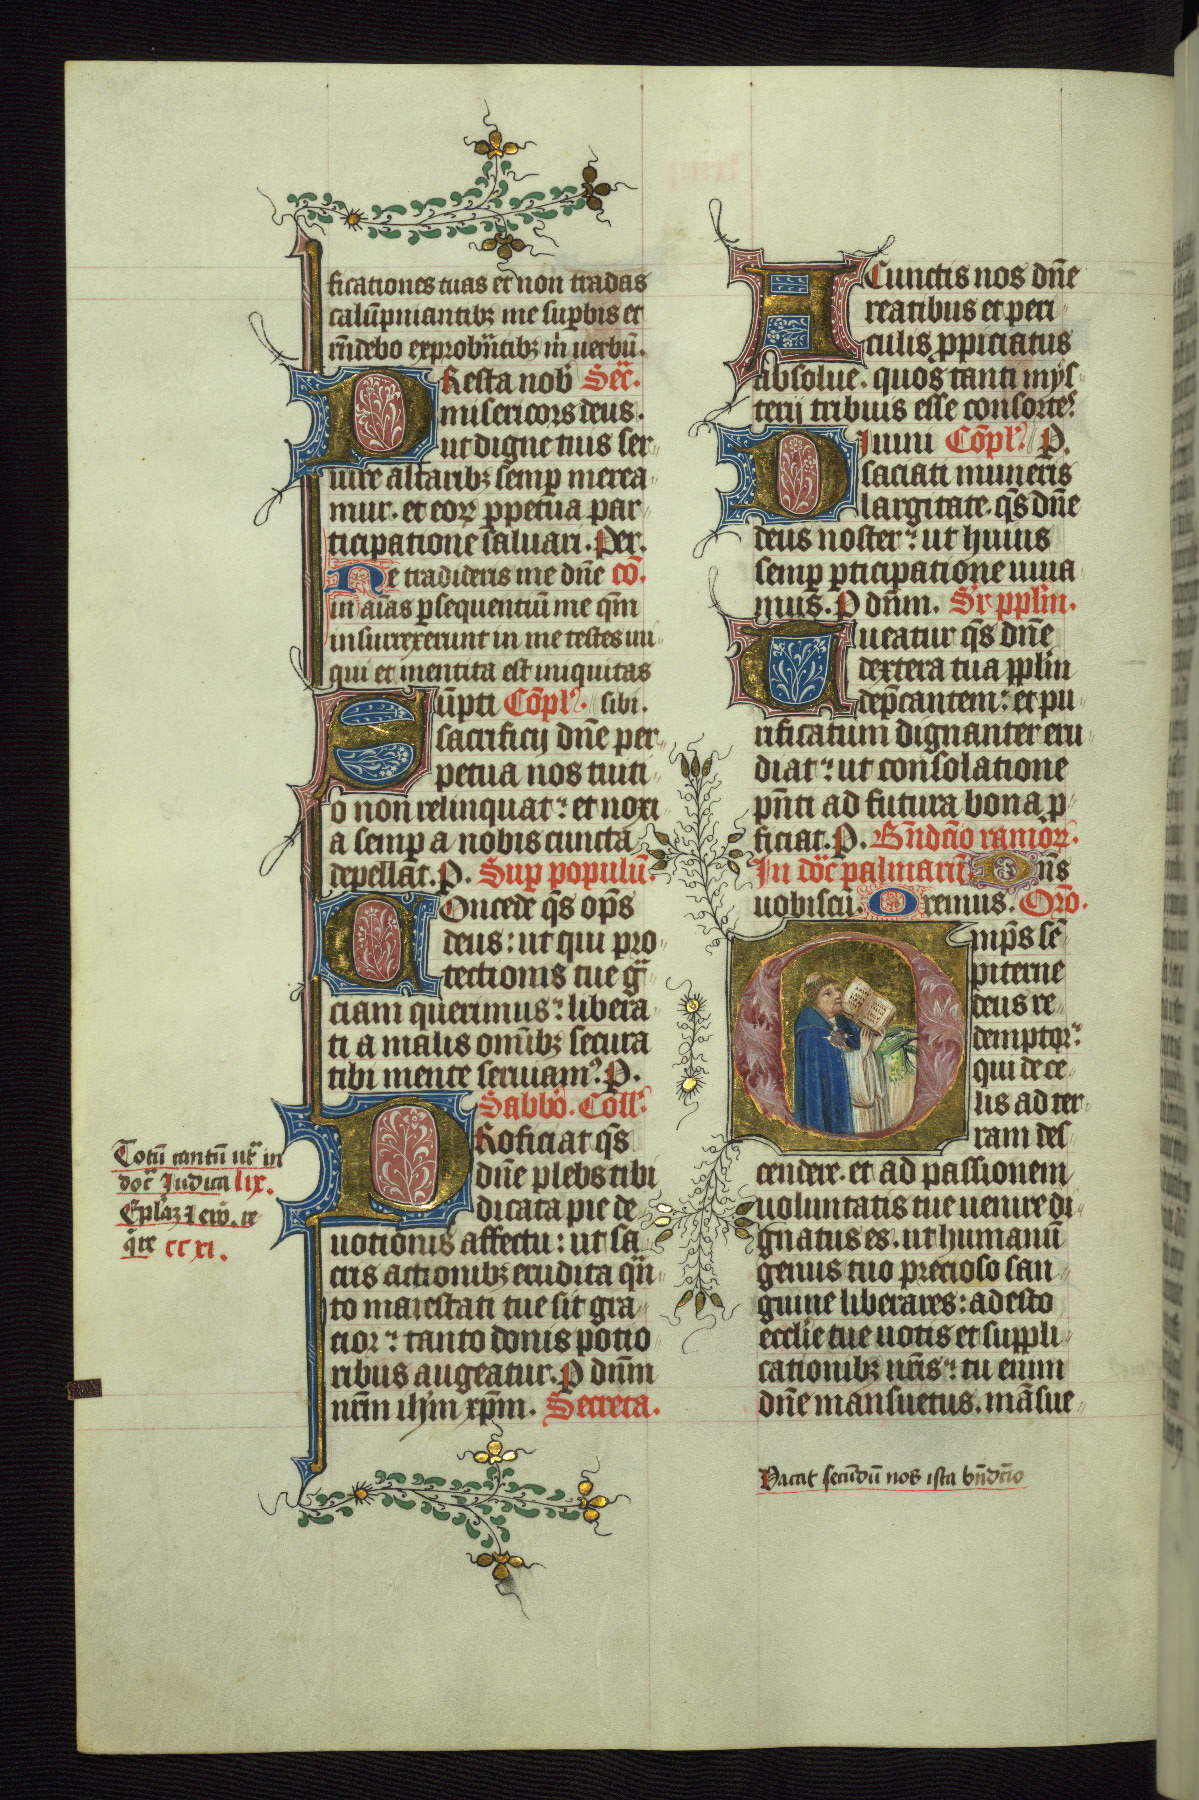 ficationes tuas et non tradas
calūpniantibꝫ me suꝑbis et
rn̄debo exprobn̄tibꝫ m̄ uerbū.
PResta nob̄ Secr̄.
misericors deus.
ut digne tuis ser
uire altaribꝫ semꝑ merea
mur. et eoꝝ ꝑpetua par
ticipatione saluari. Per.
Ne tradideris me dn̄e cō.
in aīas ꝑsequentiū me qm̄
insurrexerunt in me testes ini
qui et mentita est iniquitas
Sūpti Cōpl. sibi.
sacrificij dn̄e per
petua nos tuiti
o non relinquat: et noxi
a semꝑ a nobis cuncta
depellat. P. Sup populū.
COncede qs̄ oп̄s
deus: ut qui pro
tectionis tue gr̄
ciam querimus: libera
ti a malis om̄ibꝫ secura
tibi mente seruiam᷒. P.
Sabbō. Coll.
PRoficiat qs̄
dn̄e plebs tibi
dicata pie de
uotionis affectu: ut sa
cris actionibꝫ erudita qn̄
to maiestati tue sit gra
cior: tanto donis potio
ribus augeatur. P dn̄m
nr̄m ihm̄ xp̄m. Secreta.
Totū cantū ut̄ in
doc̄ Iudica lix.
re
qr̄e ccxi.
ACunctis nos dn̄e
reatibus et peri
culis ꝓpiciatus
absolue. quos tanti mys
terij tribuis esse consortes.
DIuini Cōpl. P.
saciati muneris
largitate. qs̄ dn̄e
deus noster: ut huius
semꝑ ꝑticipatione uiua
mus. P dn̄m. Sr pplm̄.
Tueatur qs̄ dn̄e
dextera tua pplm̄
dep̄cantem: et pu
rificatum dignanter eru
diat: ut consolatione
pn̄ti ad futura bona ꝓ
ficiat. P. Bn̄dcīo ramoꝝ.
In doc̄ palmarū Dn̄s
uobiscū. Oremus. Orō.
Omp̄s sē
piterne
deus re
demptor:
qui de ce
lis ad ter
ram des
cendere. et ad passionem
uoluntatis tue uenire di
gnatus es. ut humanū
genus tuo precioso san
guine liberares: adesto
eccl̄ie tue uotis et suppli
cationibꝫ nr̄is: tu enim
dn̄e mansuetus. māsue
Vacat secūdū nos ista bn̄dcīo